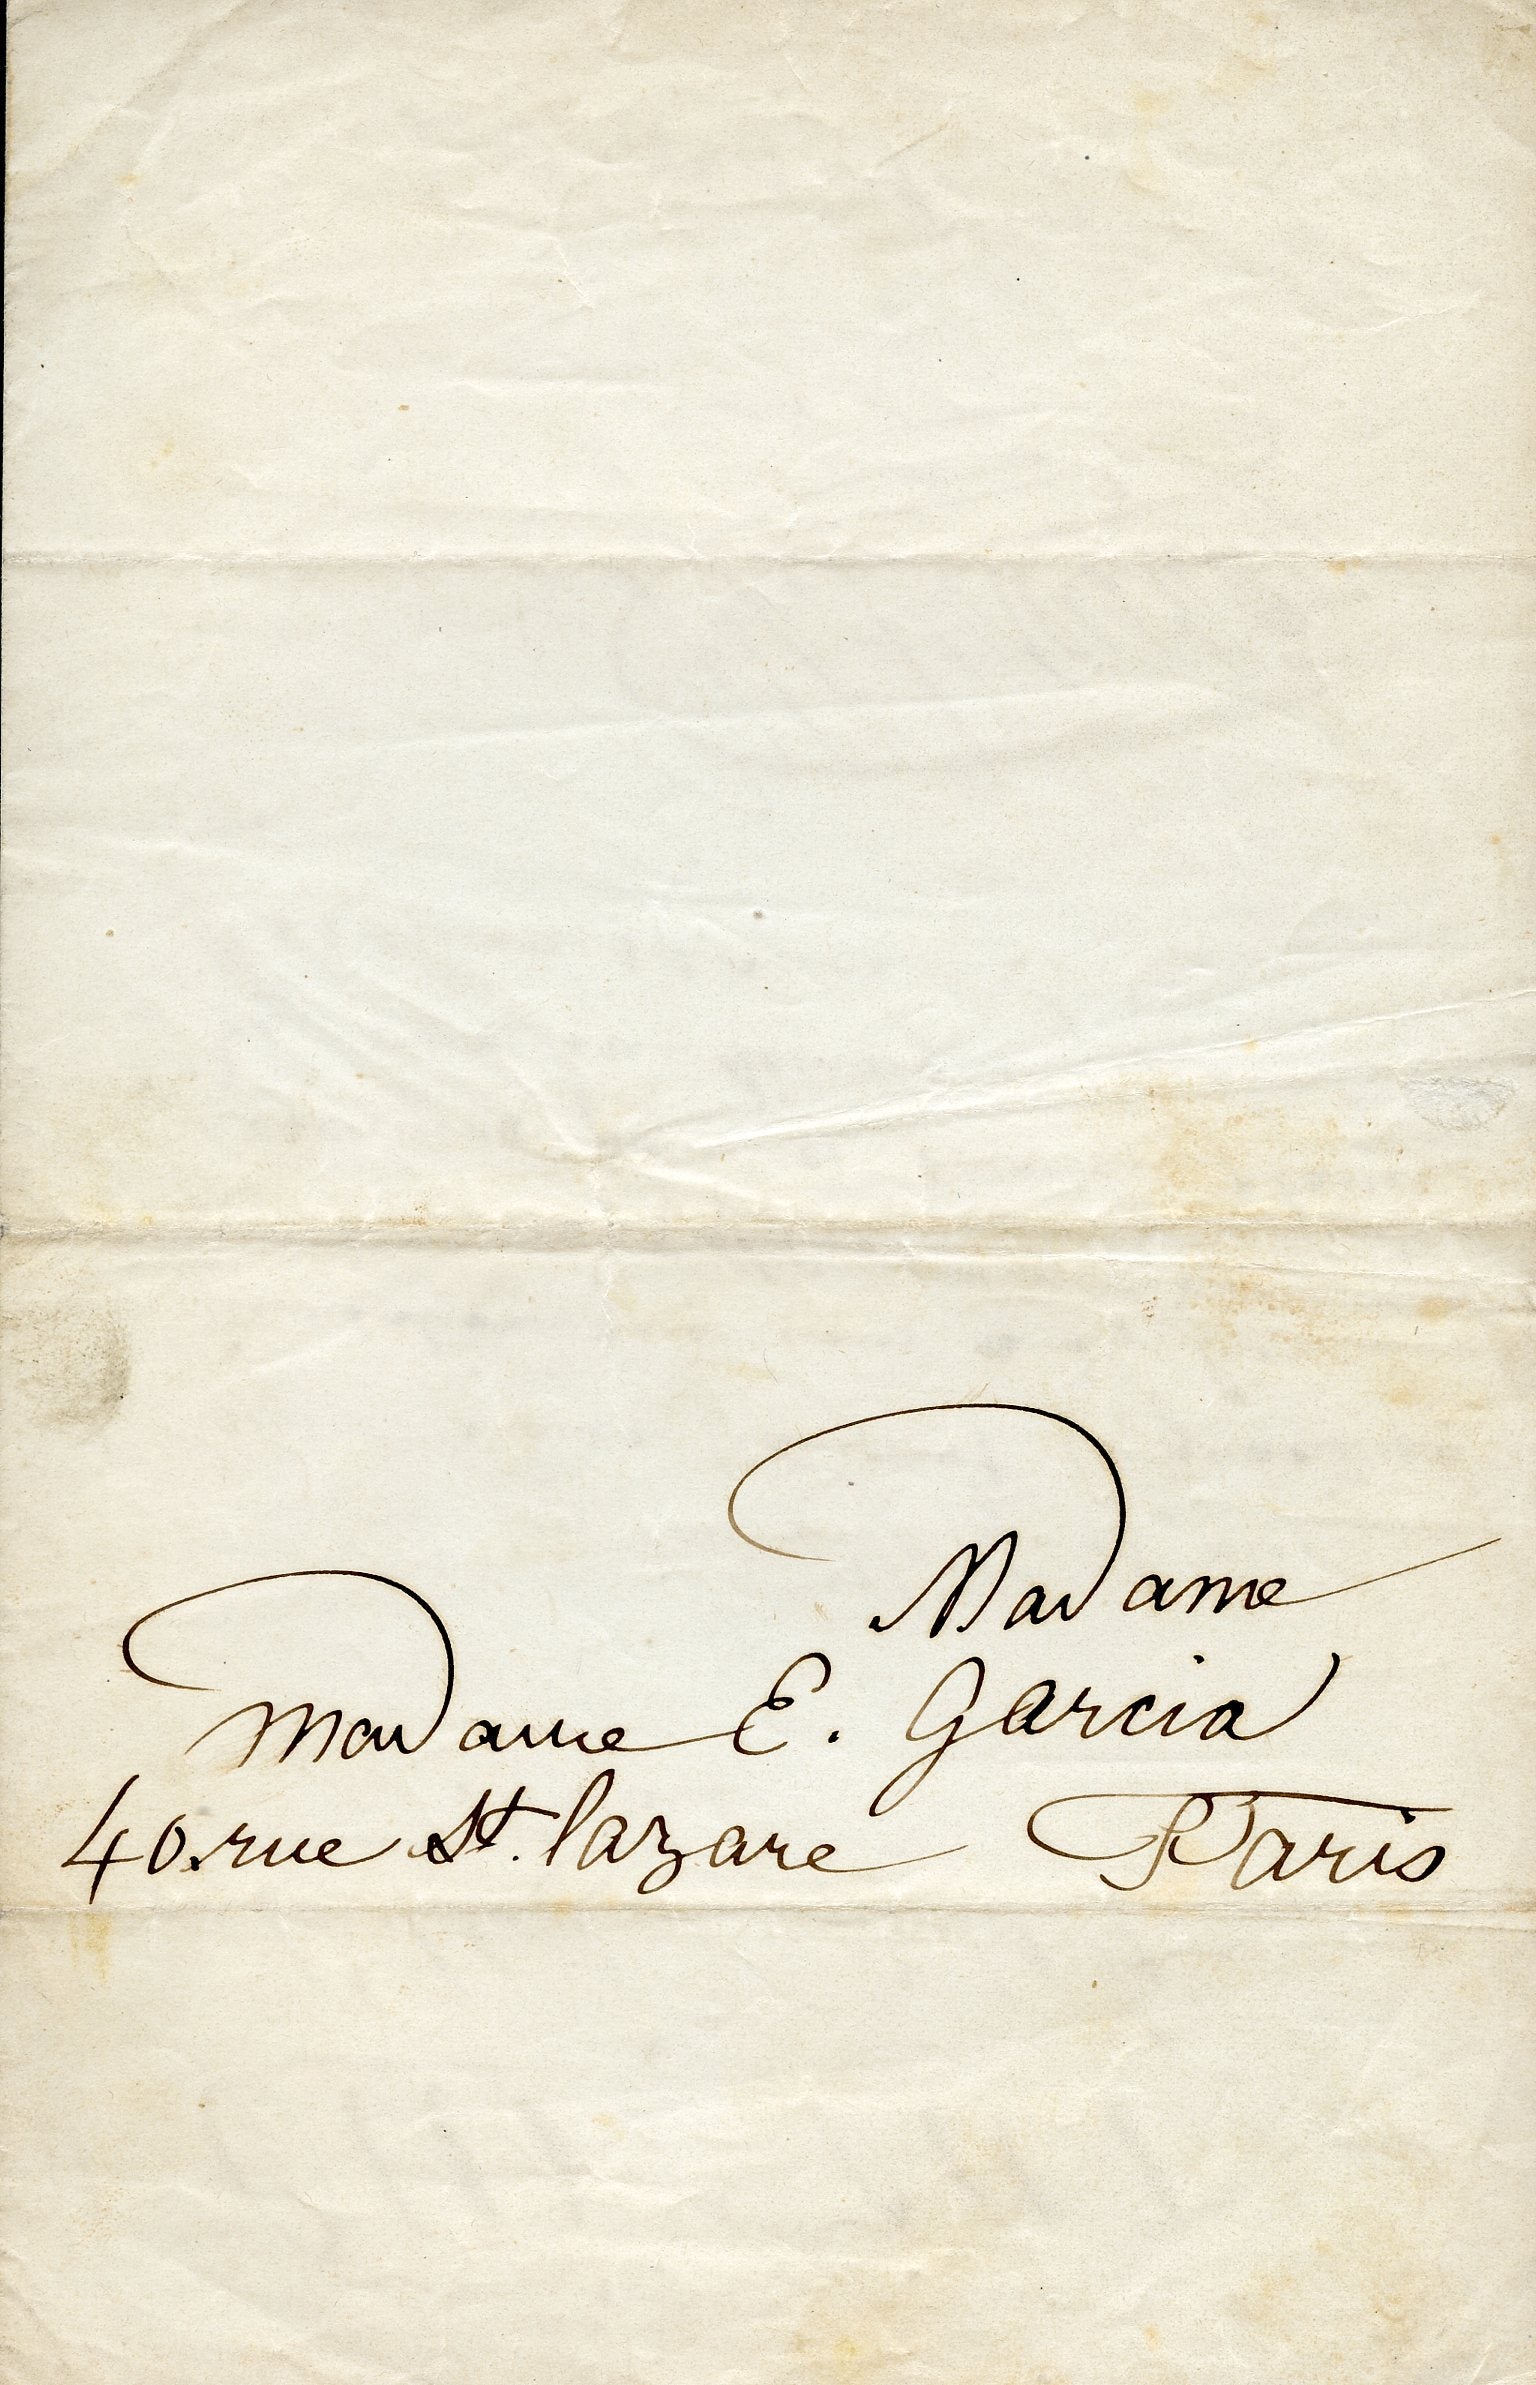 Madame
Madame E. Garcia
40. rue St. lazare Paris